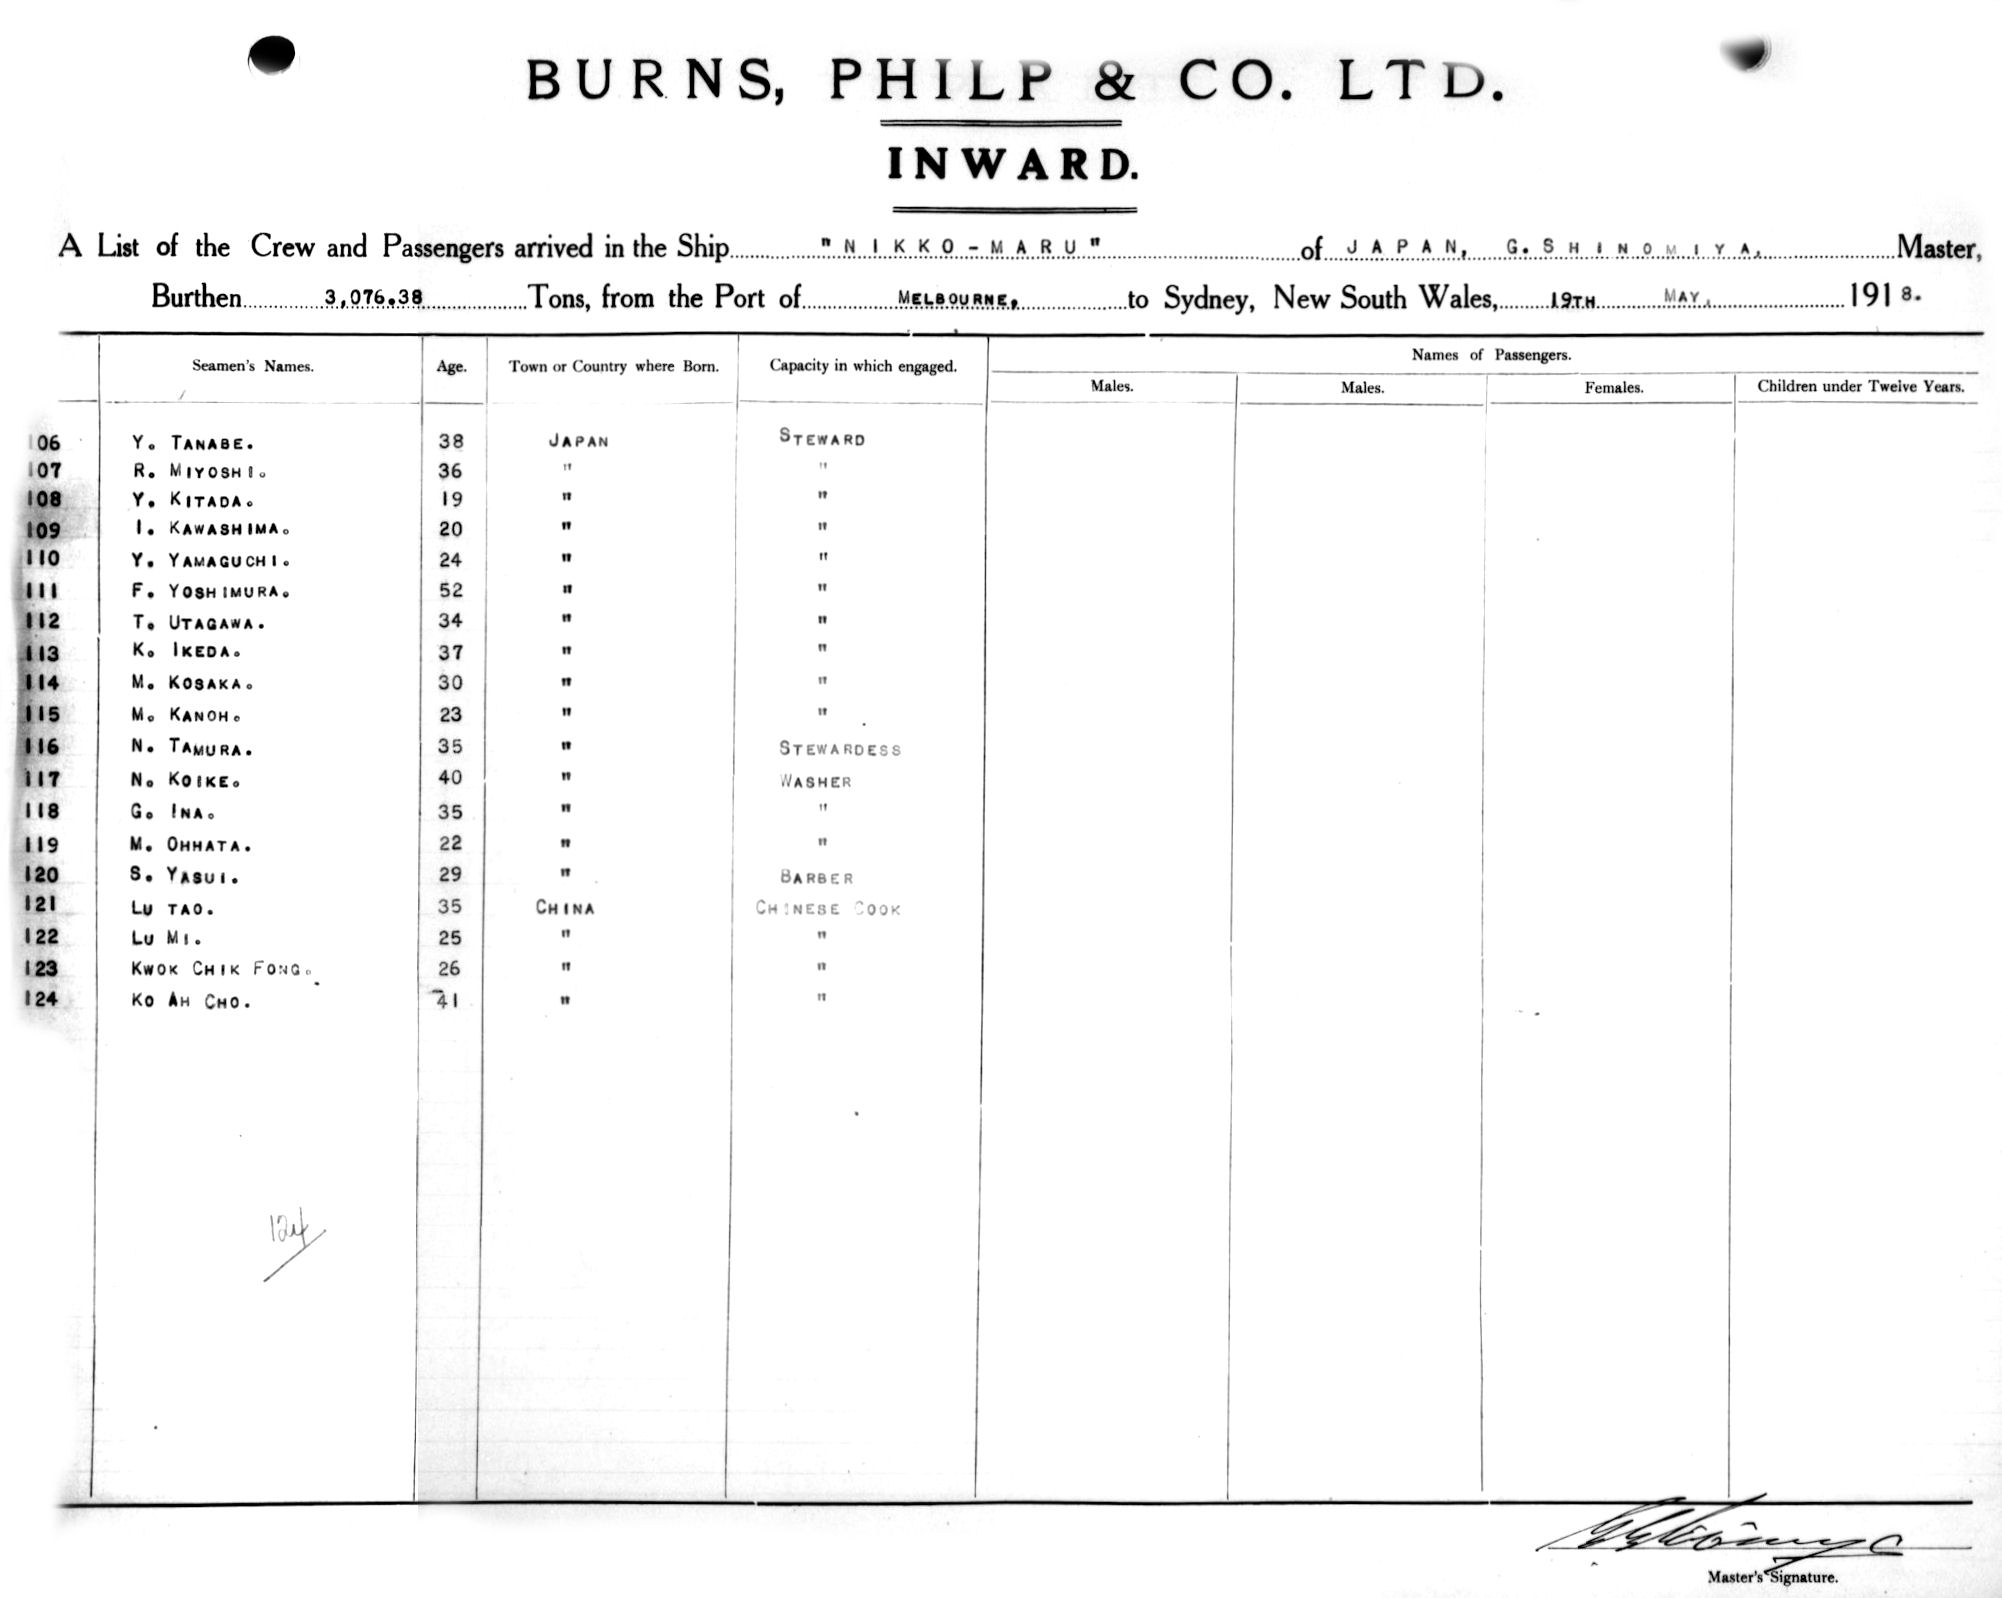 BURNS, PHILP & CO. LTD.
INWARD.
A List of the Crew and Passengers arrived in the Ship "NIKKO-MARU" of JAPAN, G. SHINOMIYA, Master,
Burthen 3,076.38 Tons, from the Port of MELBOURNE, to Sydney, New South Wales, 19TH MAY, 1918.
Names of Passengers.
Seamen's Names. Age. Town or Country where Born. Capacity in which engaged. Males. Males. Females. Children under Twelve Years.
106 Y. TANABE. 38 JAPAN STEWARD
107 R. MIYOSHI. 36 " "
108 Y. KITADA. 19 " "
109 I. KAWASHIMA. 20 " "
110 Y. YAMAGUCHI. 24 " "
111 F. YOSHIMURA. 52 " "
112 T. UTAGAWA. 34 " "
113 K. IKEDA. 37 " "
114 M. KOSAKA. 30 " "
115 M. KANOH. 23 " "
116 N. TAMURA. 35 " STEWARDESS
117 N. KOIKE. 40 " WASHER
118 G. INA. 35 " "
119 M. OHHATA. 22 " "
120 S. YASUI. 29 " BARBER
121 LU TAO. 35 CHINA CHINESE COOK
122 LU MI. 25 " "
123 KWOK CHIK FONG. 26 " "
124 KO AH CHO. 41 " "
124
Master's Signature.